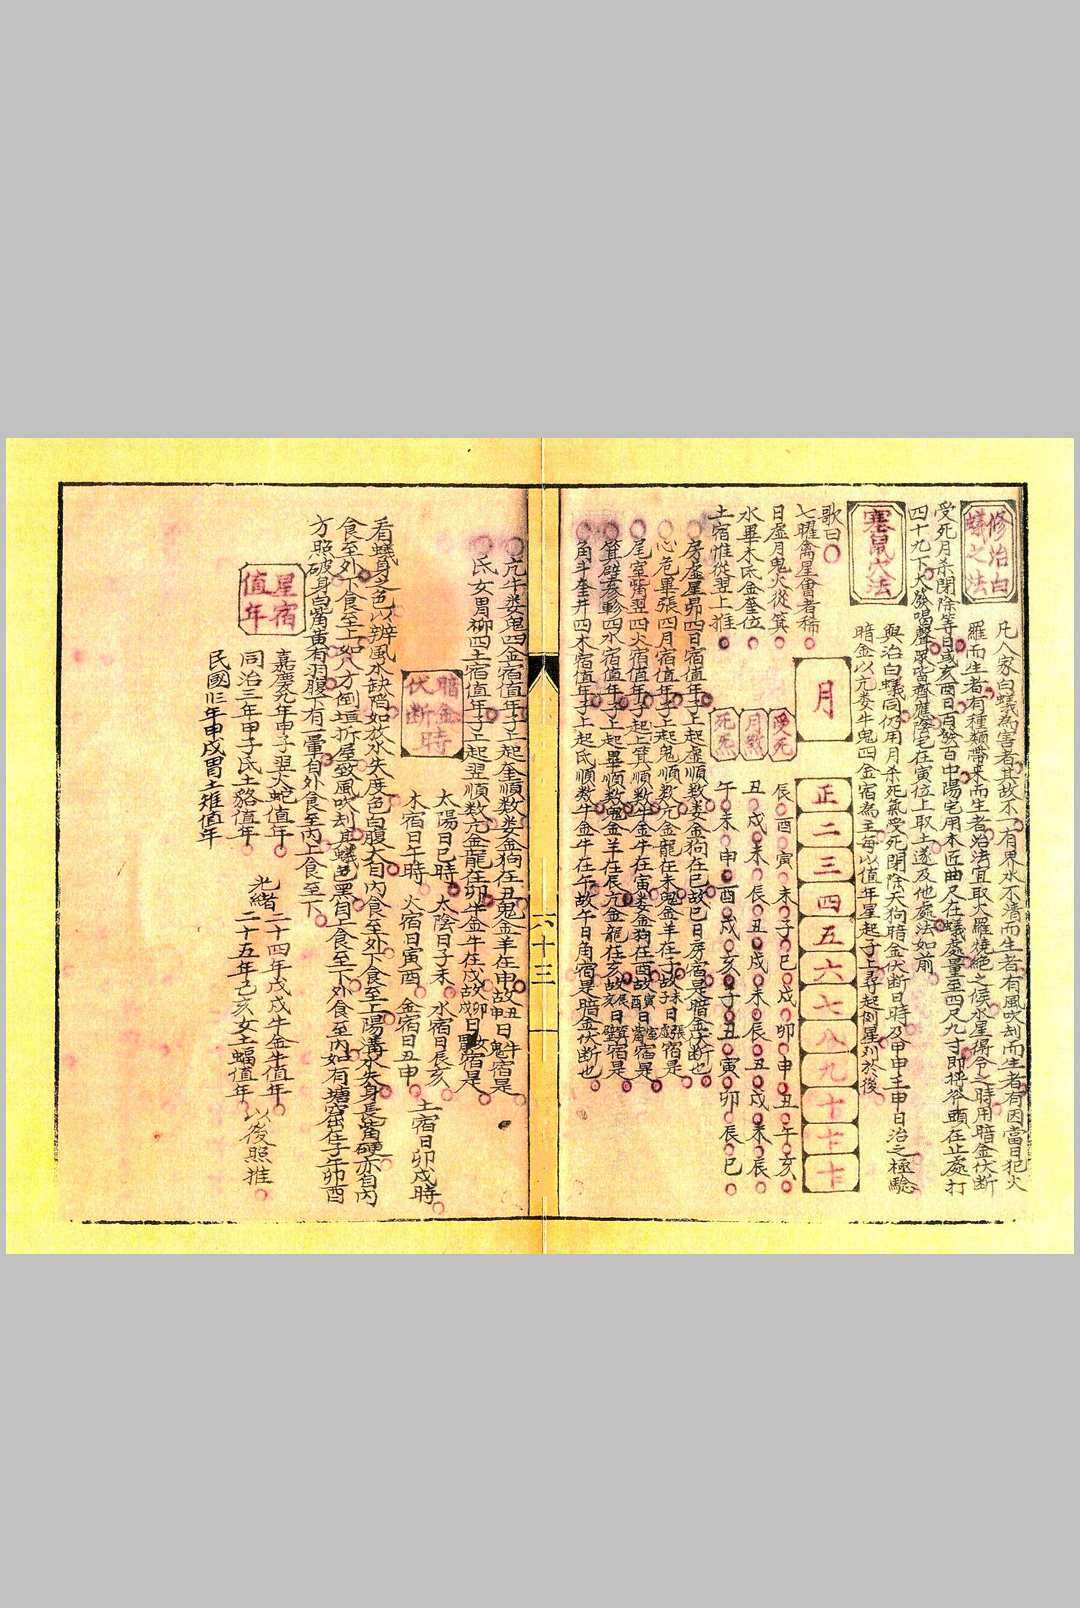 修治白蟻之法
凡人家白蟻為害者其故不一有界水不清而生者有風吹刼而生者有因當日犯火
羅而生者有種類帶來而生者治法宜取火羅燒絕之候水星得令之時用暗金伏断
受死月杀閉除等日或亥酉日百發百中陽宅用木匠曲尺在蟻處量至四尺九寸即将斧頭在止處打
四十九下大發唱聲眾皆齊應陰宅在寅位上取土遂及他處法如前
塞鼠穴法
與治白蟻同仍用月杀死氣受死閉除天狗暗金伏断日時及甲申壬申日治之極驗
暗金以亢娄牛鬼四金宿為主每以值年星起子上尋起倒星刈於後
月
正
二
三
四
五
六
七
八
九
十
十一
十二
受死
辰 酉 寅 未 子 巳 戌 卯 申 丑 午 亥
月煞
丑 戌 未 辰 丑 戌 未 辰 丑 戌 未 辰
死炁
午 未 申 酉 戌 亥 子 丑 寅 卯 辰 巳
歌曰
七曜禽星會者稀
日虚月鬼火從箕
水畢木氐金奎位
土宿惟從翌上推
房虚星昴四日宿值年子上起虚順数娄金狗在巳故巳日房宿是暗金伏断也
心危畢張四月宿值年子上起鬼順数亢金龍在未鬼金羊在子故未日張宿是
尾室觜翌四火宿值年子起上箕順数牛金牛在寅娄金狗在酉故寅日室宿是
箕壁參軫四水宿值年子上起畢順数鬼金羊在辰亢金龍在亥故辰日箕宿是
角斗奎井四木宿值年子上起氐順数牛金牛在午故午日角宿是暗金伏断也
六十三
亢牛娄鬼四金宿值年子上起奎順数娄金狗在丑鬼金羊在申故丑日牛宿是
氐女胃柳四土宿值年子上起翌順数亢金龍在卯牛金牛在戌故卯日女宿是
暗金伏断時
太陽日巳時 太陰日子未 水宿日辰亥
木宿日午時 火宿日寅酉 金宿日丑申 土宿日卯戌時
看蟻身之色以辨風水缺陷如放水失度色白腹大自内食至外下食至上陽溝水失身長觜硬亦自内
食至外下食至上如八方倒垣折屋致風吹刼其蟻色黑自上食至下外食至内如有塘窟在子午卯酉
方照破身白觜黄有泪腹下有一暈自外食至内上食至下
星宿值年
嘉慶九年甲子翌火蛇值年
同治三年甲子氐土貉值年
光緒二十四年戊戌牛金牛值年
二十五年己亥女土蝠值年 以後照推
民國廿三年甲戌胃土雉值年